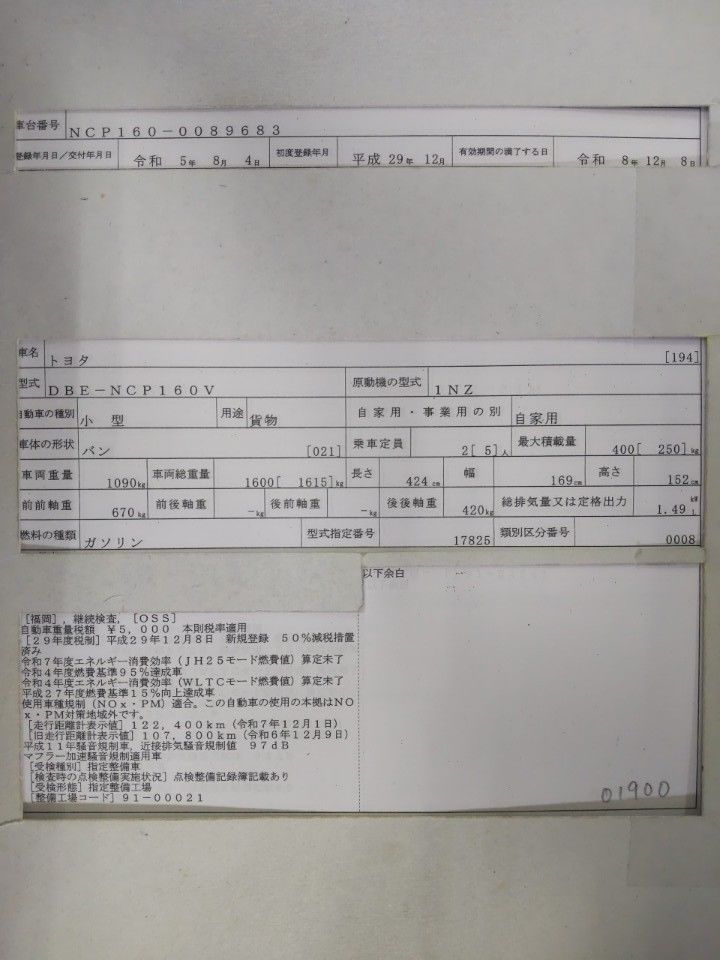 車台番号 NCP160-0089683
登録年月日/交付年月日 令和 5年 8月 4日 初度登録年月 平成 29年 12月 有効期間の満了する日 令和 8年 12月 8日
車名 トヨタ [194]
型式 DBE-NCP160V 原動機の型式 1NZ
自動車の種別 小型 用途 貨物 自家用・事業用の別 自家用
車体の形状 バン [021] 乗車定員 2[ 5]人 最大積載量 400[ 250]kg
車両重量 1090kg 車両総重量 1600[ 1615]kg 長さ 424cm 幅 169cm 高さ 152cm
前前軸重 670kg 前後軸重 -kg 後前軸重 -kg 後後軸重 420kg 総排気量又は定格出力 1.49 kW L
燃料の種類 ガソリン 型式指定番号 17825 類別区分番号 0008
以下余白
[福岡],継続検査,[OSS]
自動車重量税額 ¥5,000 本則税率適用
[29年度税制]平成29年12月8日 新規登録 50%減税措置
済み
令和7年度エネルギー消費効率(JH25モード燃費値)算定未了
令和4年度燃費基準95%達成車
令和4年度エネルギー消費効率(WLTCモード燃費値)算定未了
平成27年度燃費基準15%向上達成車
使用車種規制(NOx・PM)適合。この自動車の使用の本拠はNO
x・PM対策地域外です。
[走行距離計表示値]122,400km(令和7年12月1日)
[旧走行距離計表示値]107,800km(令和6年12月9日)
平成11年騒音規制車,近接排気騒音規制値 97dB
マフラー加速騒音規制適用車
[受検種別]指定整備車
[検査時の点検整備実施状況]点検整備記録簿記載あり
[受検形態]指定整備工場
[整備工場コード]91-00021
01900